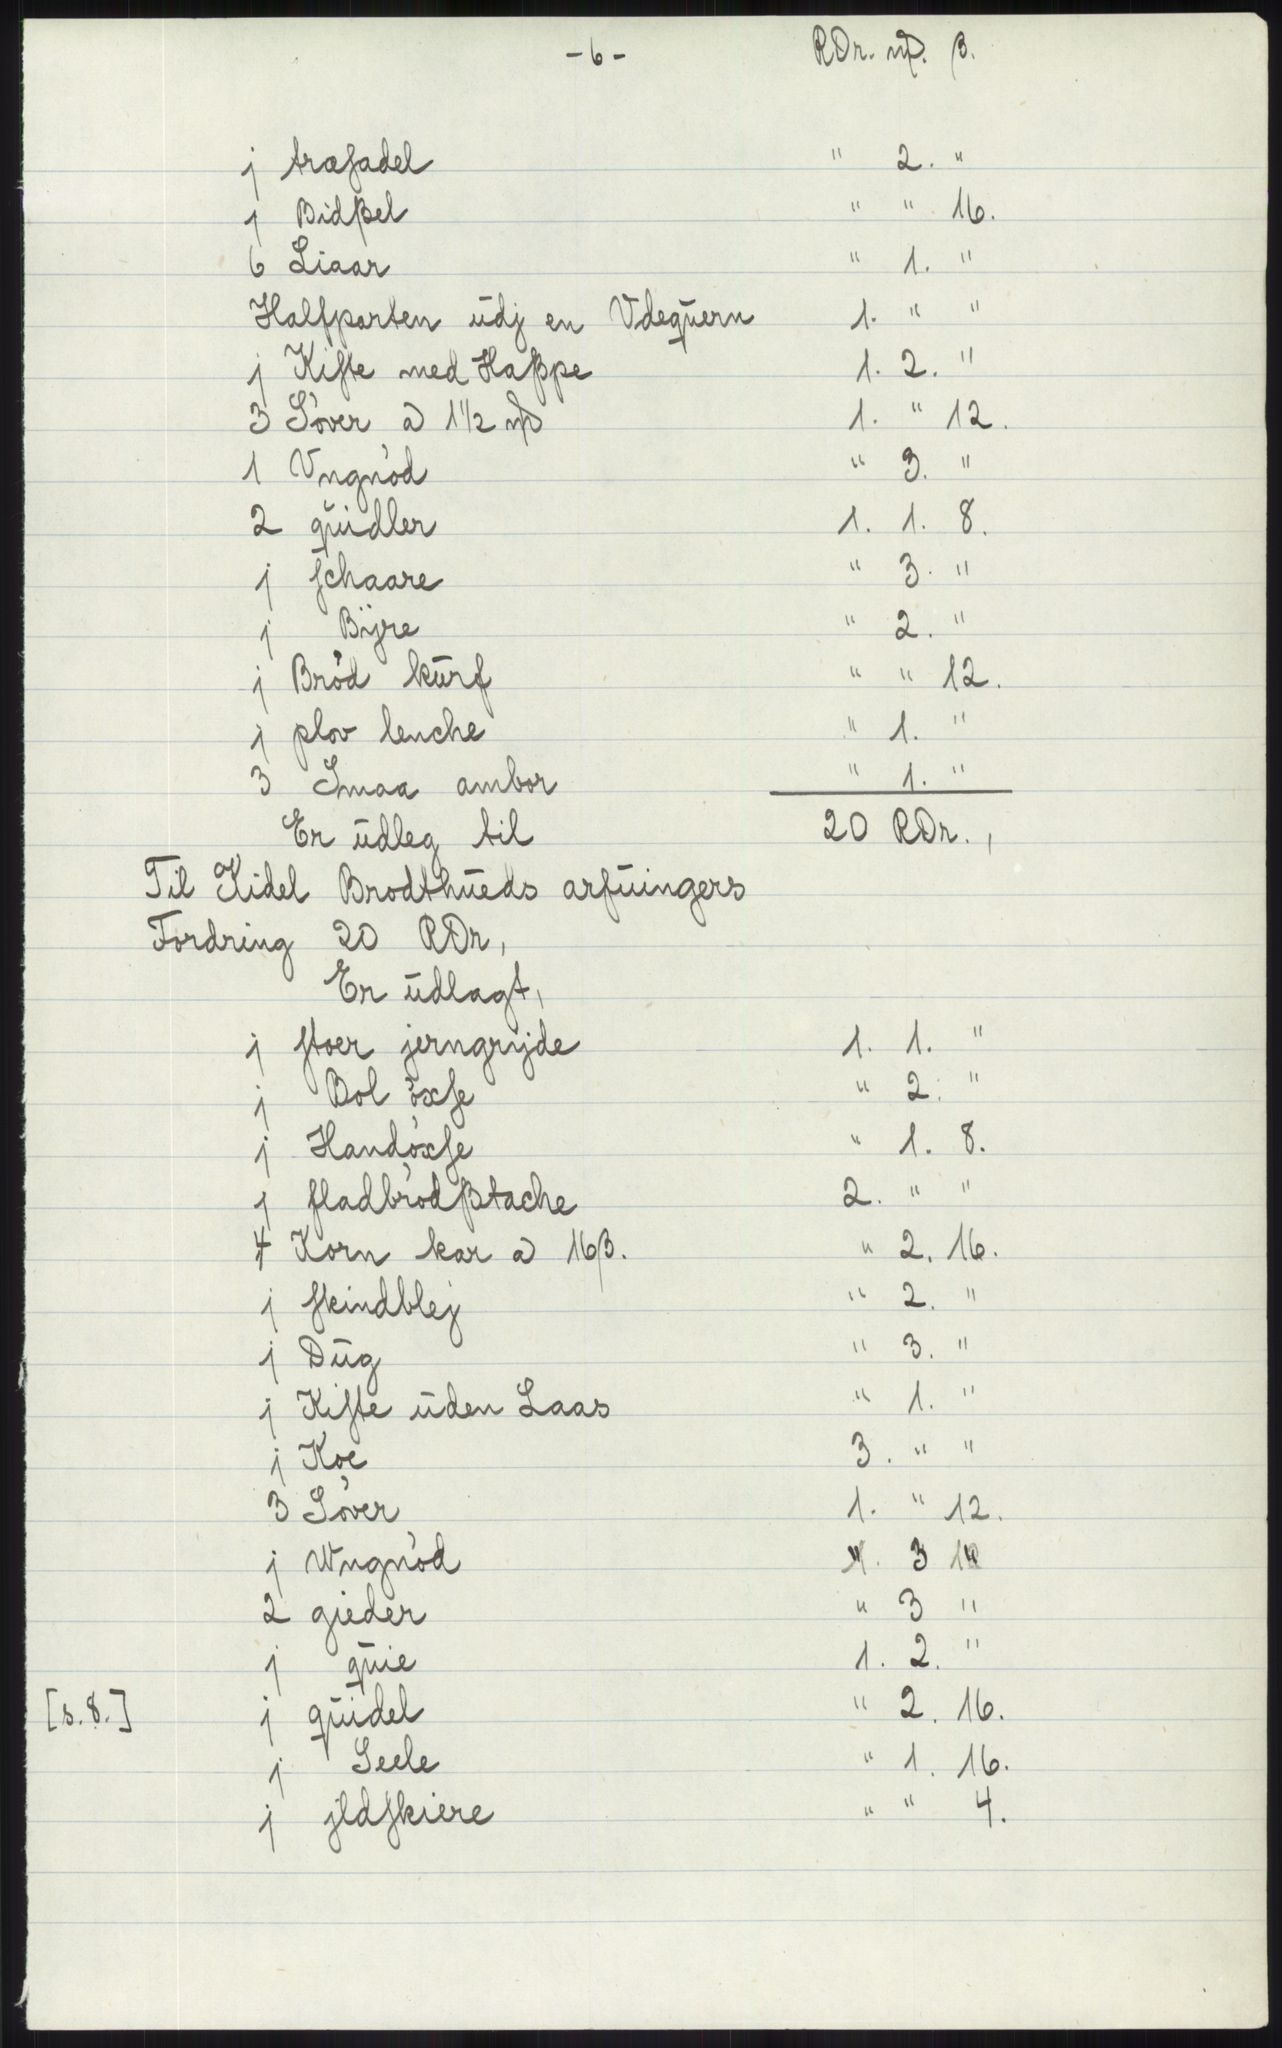 -6- RDr. mſ. β.
j træſadel " 2. "
j Bidβel " " 16.
6 Liaar " 1. "
Halfparten ūdj en Vdeqūern 1. " "
j Kiſte med Haβpe 1. 2. "
3 Söver a 1 1/2 mſ 1. " 12.
1 Vngnöd " 3. "
2 qūidler 1. 1. 8.
j ſchaare " 3. "
j Bÿre " 2. "
j Bröd kūrf " " 12.
j plov lenche " 1. "
3 Smaa ambor " 1. "
Er ūdleg til 20 RDr.,
Til Kidel Brodthūeds arfūingers
Fordring 20 RDr,
Er ūdlagt,
j ſtoer jerngrÿde 1. 1. "
j Bol öxſe " 2. "
j Handöxſe " 1. 8.
j fladbrödβtache 2. " "
4 Korn kar a 16β. " 2. 16.
j ſkindblej " 2. "
j Dūg " 3. "
j Kiſte ūden Laas " 1. "
j Koe 3. " "
3 Söver 1. " 12.
j Wngnöd " 3 "
2 gieder " 3 "
j qūie 1. 2. "
[s. 8.] j qūidel " 2. 16.
j Seele " 1. 16.
j jldſkiere " " 4.